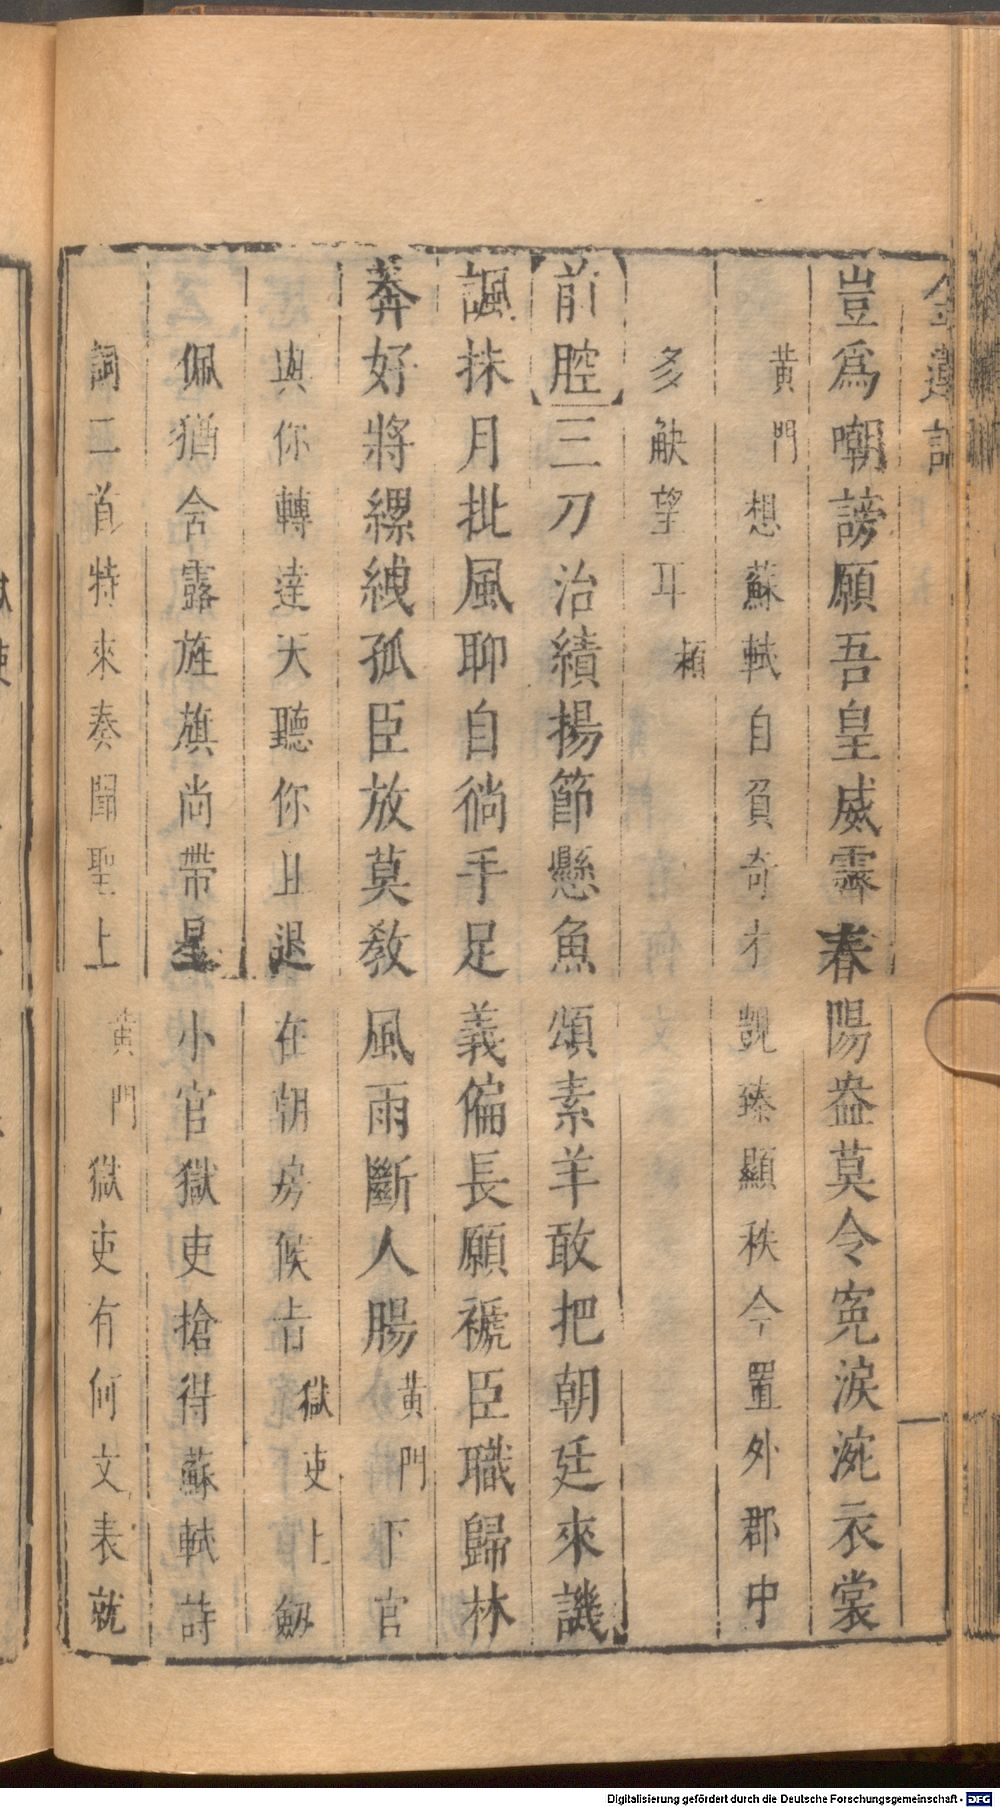 金蓮記
豈爲嘲謗願吾皇威霽春陽盎莫令寃淚涴衣裳
黃門想蘇軾自負奇才覬臻顯秩今置外郡中
多觖望耳頼
前腔三刀治績揚節懸魚頌素羊敢把朝廷來譏
諷抹月批風聊自徜手足義偏長願褫臣職歸林
莽好將縲絏孤臣放莫敎風雨斷人腸黃門下官
與你轉達天聽你且退在朝房候吉獄吏上劔
佩猶含露旌旗尚帶星小官獄吏搶得蘇軾詩
詞二首特來奏聞聖上黃門獄吏有何文表就
Digitalisierung gefördert durch die Deutsche Forschungsgemeinschaft - DFG